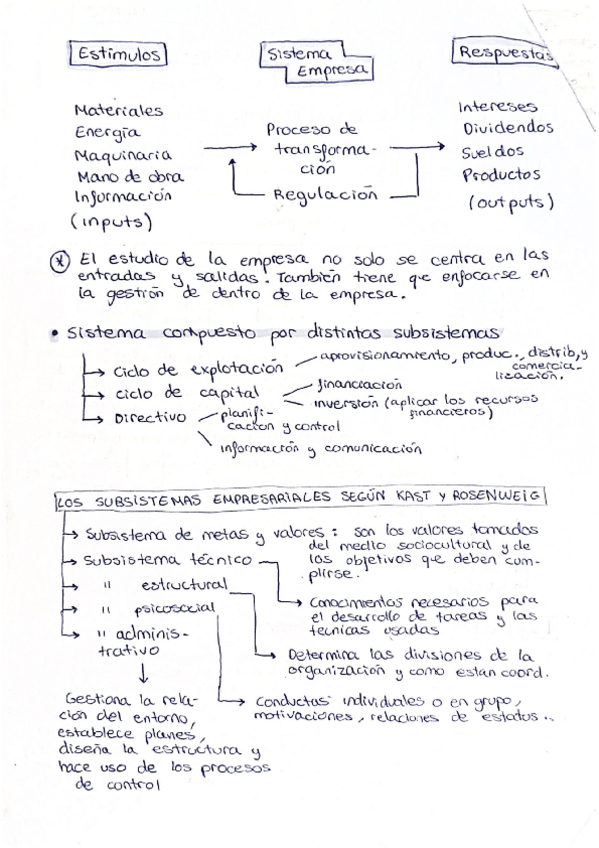 Estímulos
Sistema
Empresa
Respuestas
Materiales
Energía
Maquinaria
Mano de obra
Información
(inputs)
Proceso de
transforma-
ción
Regulación
Intereses
Dividendos
Sueldos
Productos
(outputs)
* El estudio de la empresa no solo se centra en las
entradas y salidas. También tiene que enfocarse en
la gestión de dentro de la empresa.
• Sistema compuesto por distintos subsistemas
→ ciclo de explotación — aprovisionamiento, produc., distrib, y
comercia-
lización.
→ ciclo de capital — financiación
— inversión (aplicar los recursos
financieros)
→ Directivo — planifi-
cación y control
— información y comunicación
LOS SUBSISTEMAS EMPRESARIALES SEGÚN KAST Y ROSENWEIG
→ Subsistema de metas y valores: son los valores tomados
del medio sociocultural y de
los objetivos que deben cum-
plirse.
→ Subsistema técnico
→ Conocimientos necesarios para
el desarrollo de tareas y las
técnicas usadas
→ " estructural
→ Determina las divisiones de la
organización y como estan coord.
→ " psicosocial
→ Conductas individuales o en grupo,
motivaciones, relaciones de estatus..
→ " adminis-
trativo
↓
Gestiona la rela-
ción del entorno,
establece planes,
diseña la estructura y
hace uso de los procesos
de control